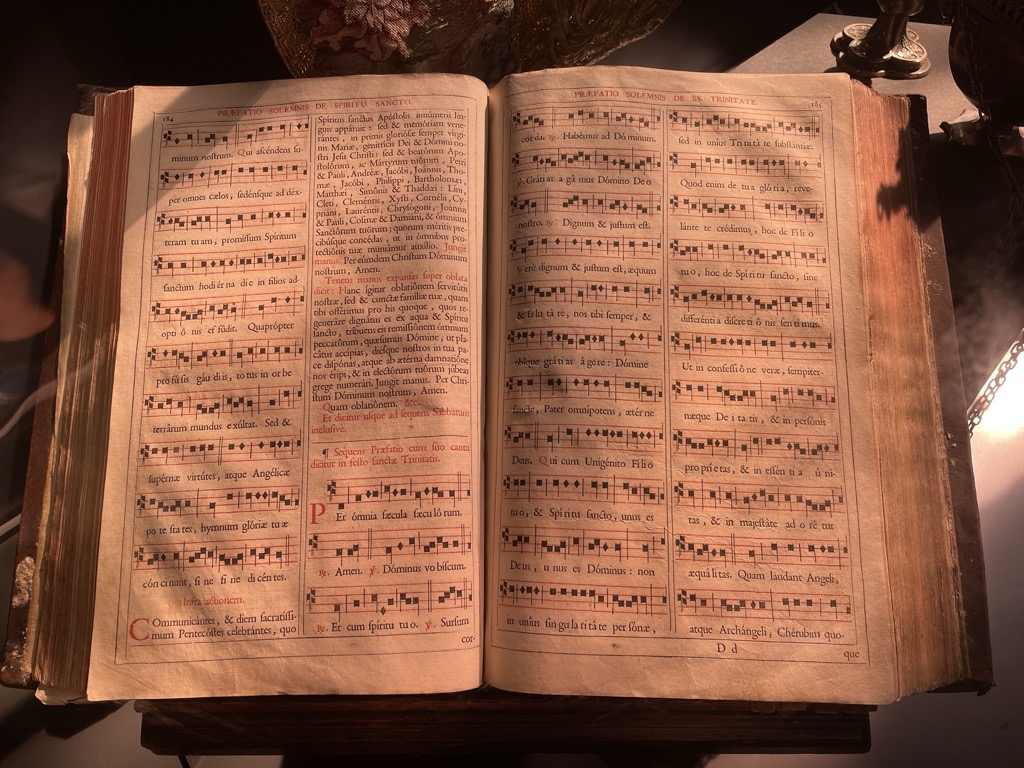 184
PRÆFATIO SOLEMNIS DE SPIRITU SANCTO.
minum nostrum. Qui ascéndens su-
per omnes cælos, sedénsque ad déx-
teram tuam, promissum Spiritum
sanctum hodiérna die in fílios ad-
opti ó nis effúdit. Quaprópter
profúsis gáudiis, totus in orbe
terrárum mundus exsúltat. Sed &
supérnæ virtútes, atque Angélicæ
po te státes, hymnum glóriæ tuæ
cóncinunt, si ne fi ne dicéntes.
Infra actionem.
Communicántes, & diem sacratíssi-
mum Pentecóstes celebrántes, quo
Spíritus sanctus Apóstolis innúmeris lin-
guis appáruit: sed & memóriam vene-
rántes, in primis gloriósæ semper vírgi-
nis Maríæ, genitrícis Dei & Dómini no-
stri Jesu Christi: sed & beatórum Apo-
stolórum, ac Mártyrum tuórum, Petri
& Pauli, Andréæ, Jacóbi, Joánnis, Tho-
mæ, Jacóbi, Philíppi, Bartholomæi,
Matthæi, Simónis & Thaddæi: Lini,
Cleti, Cleméntis, Xysti, Cornélii, Cy-
priáni, Lauréntii, Chrysógoni, Joánnis
& Pauli, Cosmæ & Damiáni, & ómnium
Sanctórum tuórum; quorum méritis pre-
cibúsque concédas, ut in ómnibus pro-
tectiónis tuæ muniámur auxílio. Jungit
manus. Per eúmdem Christum Dóminum
nostrum, Amen.
Tenens manus expansas super oblata
dicit: Hanc ígitur oblatiónem servitútis
nostræ, sed & cunctæ famíliæ tuæ, quam
tibi offérimus pro his quoque, quos re-
generáre dignátus es ex aqua & Spíritu
sancto, tríbuens eis remissiónem ómnium
peccatórum, quæsumus Dómine, ut pla-
cátus accípias, diésque nostros in tua pa-
ce dispónas, atque ab ætérna damnatióne
nos éripi, & in electórum tuórum júbeas
grege numerári. Jungit manus. Per Chri-
stum Dóminum nostrum, Amen.
Quam oblatiónem. &c.
Et dicitur usque ad sequens Sabbatum
inclusivè.
¶ Sequens Præfatio cum suo cantu
dicitur in festo sanctæ Trinitatis.
PEr ómnia sæcula sæculórum.
℟. Amen. ℣. Dóminus vobíscum.
℟. Et cum spíritu tuo. ℣. Sursum
cor-
PRÆFATIO SOLEMNIS DE SS. TRINITATE.
185
corda. ℟. Habémus ad Dóminum.
℣. Grátias agámus Dómino Deo
nostro. ℟. Dignum & justum est.
Verè dignum & justum est, æquum
& salutáre, nos tibi semper, &
ubíque grátias ágere: Dómine
sancte, Pater omnípotens, ætérne
Deus. Qui cum Unigénito Fílio
tuo, & Spíritu sancto, unus es
Deus, unus es Dóminus: non
in uníus singularitáte persónæ,
sed in uníus Trinitáte substántiæ.
Quod enim de tua glória, reve-
lánte te crédimus, hoc de Fílio
tuo, hoc de Spíritu sancto, sine
differéntia discretiónis sentímus.
Ut in confessióne veræ, sempiter-
næque Deitátis, & in persónis
propríetas, & in esséntia úni-
tas, & in majestáte adorétur
æquálitas. Quam laudant Angeli,
atque Archángeli, Chérubim quo-
D d
que